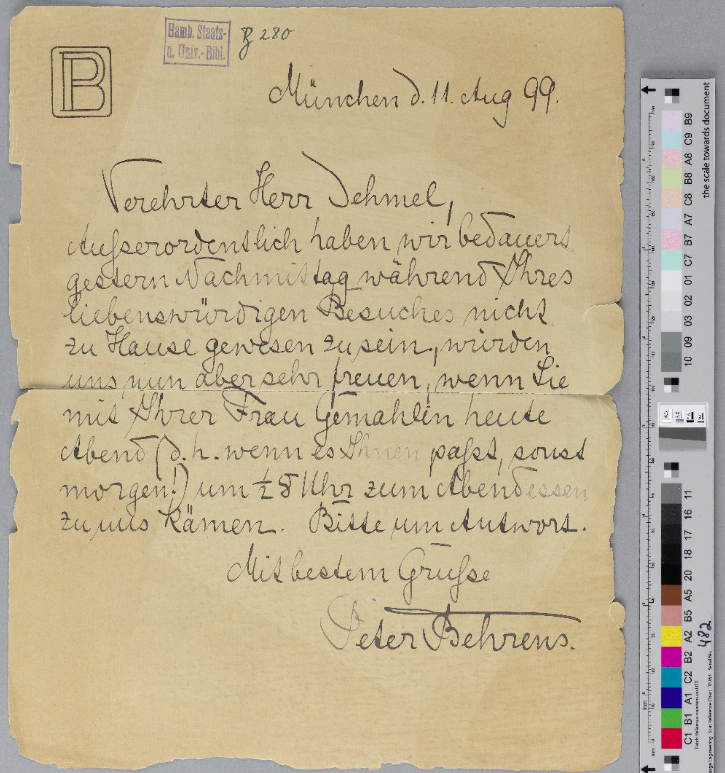 Hamb. Staats-
u. Univ.-Bibl.
280
PB
München d. 11. Aug 99.
Verehrter Herr Dehmel,
Außerordentlich haben wir bedauert
gestern Nachmittag während Ihres
liebenswürdigen Besuches nicht
zu Hause gewesen zu sein, würden
uns nun aber sehr freuen, wenn Sie
mit Ihrer Frau Gemahlin heute
Abend (d. h. wenn es Ihnen paßt, sonst
morgen!) um ½ 8 Uhr zum Abendessen
zu uns kämen. Bitte um Antwort.
Mit bestem Gruße
Peter Behrens.
the scale towards document
B9
C9
A8
B8
C8
A7
B7
C7
01
02
03
09
10
11
16
17
18
20
A5
B5
A2
B2
C2
A1
B1
C1
482